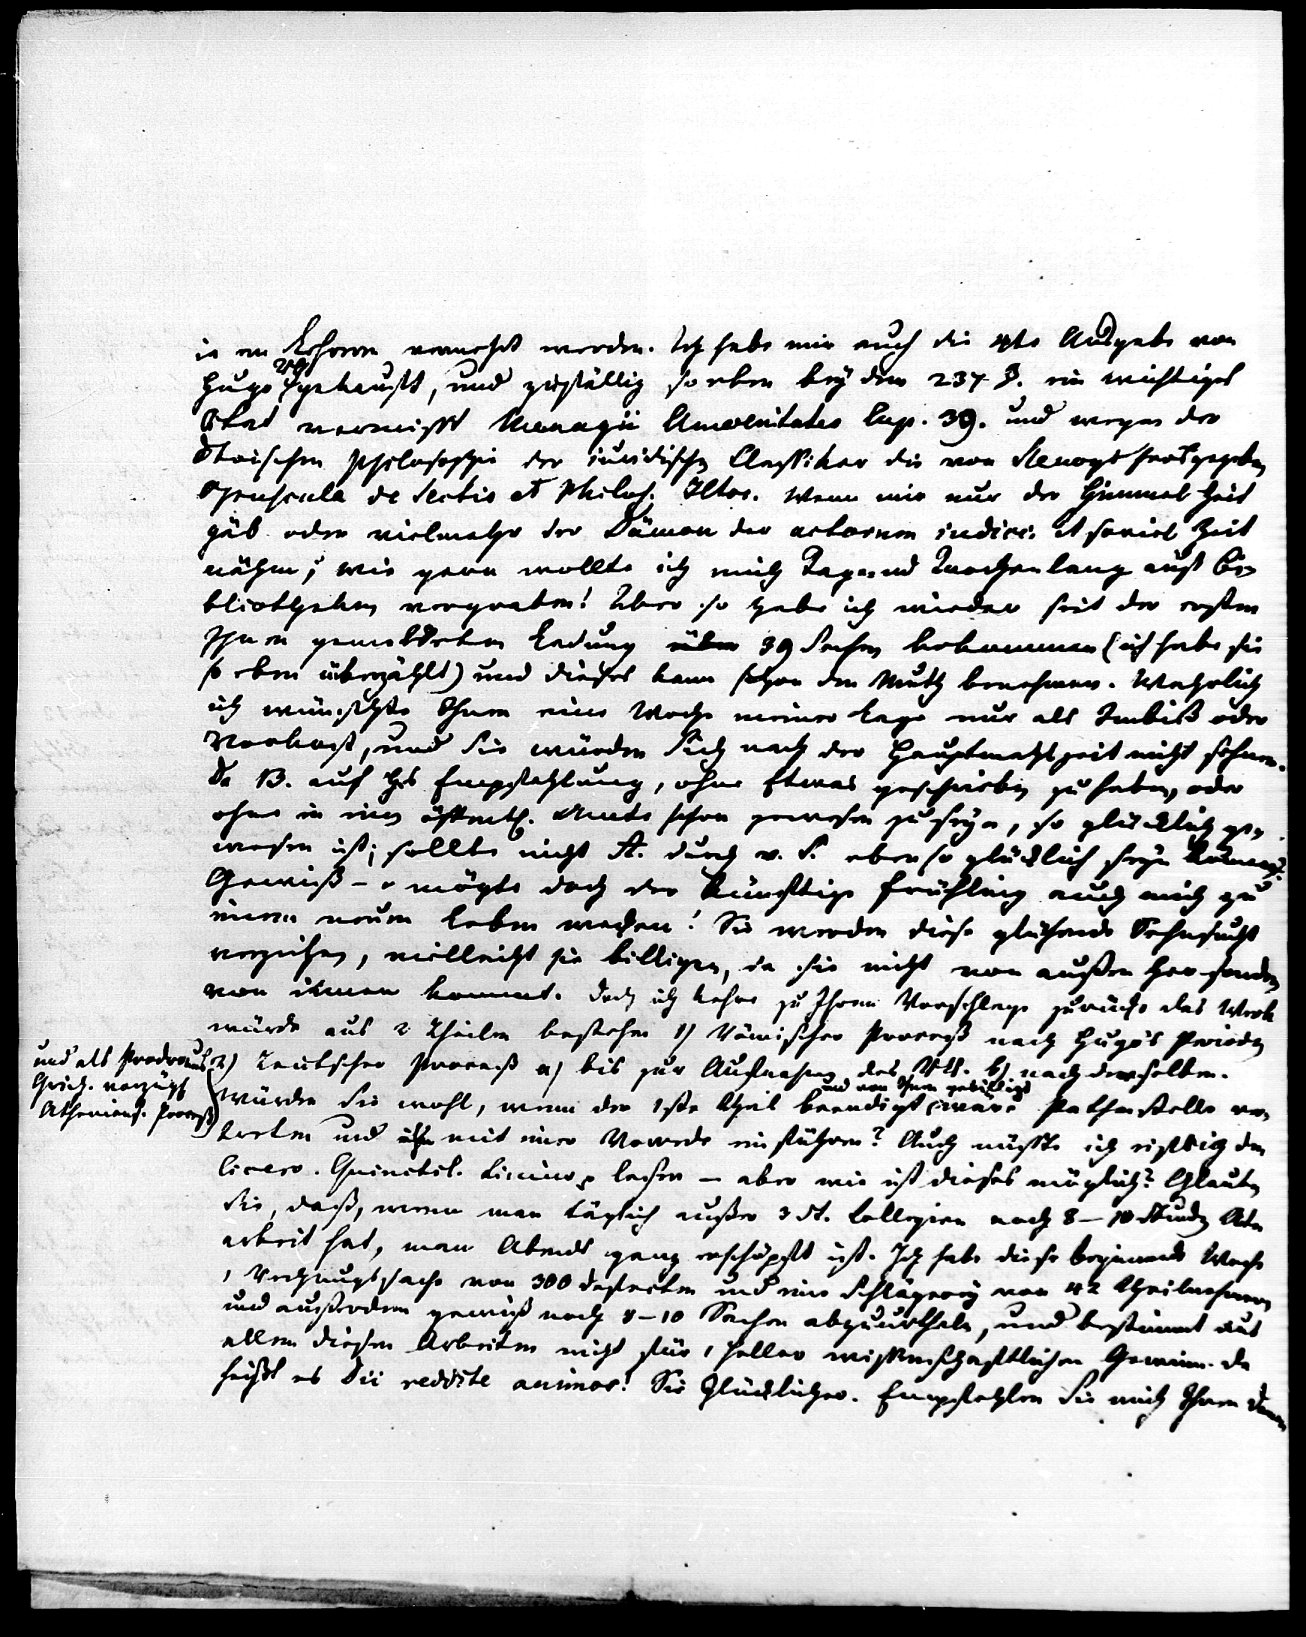 in en Ehren vermehrt werden. Ich habe mir auch die 4te Ausgabe von
Hugo RG gekauft, und zufällig so eben bey dem 237 §. ein wichtiges
Citat vermißt Menagii Amoenitates Cap. 39. und wegen der
Stoischen Philosophie der iuridischen Classiker die von herausgegeben
Opuscula de Sectis et Philos. ICtor. Wenn mir nur der Himmel Zeit
gäb oder vielmehr der Dämon der actorum iudici. et soviel Zeit
nähme; wie gern wollte ich mich Tage und Wochenlang auf Bi-
bliotheken vergraben! Aber so habe ich wieder seit der ersten
Ihnen gemeldeten Ladung über 39 Sachen bekommen (ich habe sie
so eben überzählt) und dieses kann schon den Muth benehmen. Wahrlich
ich wünschte Ihnen eine Woche meiner Lage nur als Imbiß oder
Vorkost, und Sie würden Sich nach der Hauptmahlzeit nicht sehnen.
Da B. auf Hs Empfehlung, ohne Etwas geschrieben zu haben, oder
ohne in einem öffentl. Amte schon gewesen zu seyn, so glücklich ge-
wesen ist; sollte nicht A. durch v. S. eben so glücklich seyn können?
Gewiß - o mögte doch der künftige Frühling auch mich zu
einem neuen Leben wecken! Sie werden diese glühende Sehnsucht
verzeihen, vielleicht sie billigen, da sie nicht von außen her sondern
von innen kommt. Doch ich kehre zu Ihrem Vorschlage zurück. Das Werk
würde aus 2 Theilen bestehen 1) Römischer Proceß nach Hugo's Perioden
und als Prodromus
Griech. vorzügl.
Atheniens. Proceß
2) Teutscher Proceß a) bis zur Aufnahme des RR. b) nach derselben.
und von Ihnen gebilligt
würden Sie wohl, wenn der 1ste Theil beendigt wäre Pathenstelle ver-
treten und ihn mit einer Vorrede einführen? Auch müßte ich richtig den
Cicero. Quinctil. Livius lesen — aber wie ist dieses möglich? Glauben
Sie, daß, wenn man täglich außer 3 St. Collegien noch 8—10 Stunden Acten
arbeit hat, man Abends ganz erschöpft ist. Ich habe diese beginnende Woche
1 Rechnungssache von 300 Defecten und eine Schlägerey von 42 Theilnehmern
und außerdem gewiß noch 8—10 Sachen abzuurtheln, und bestimmt aus
allen diesen Arbeiten nicht für 1 Heller wissenschaftlichen Gewinn. Da
heißt es Dii reddite animos! Sie Glücklicher. Empfehlen Sie mich Ihren Damen